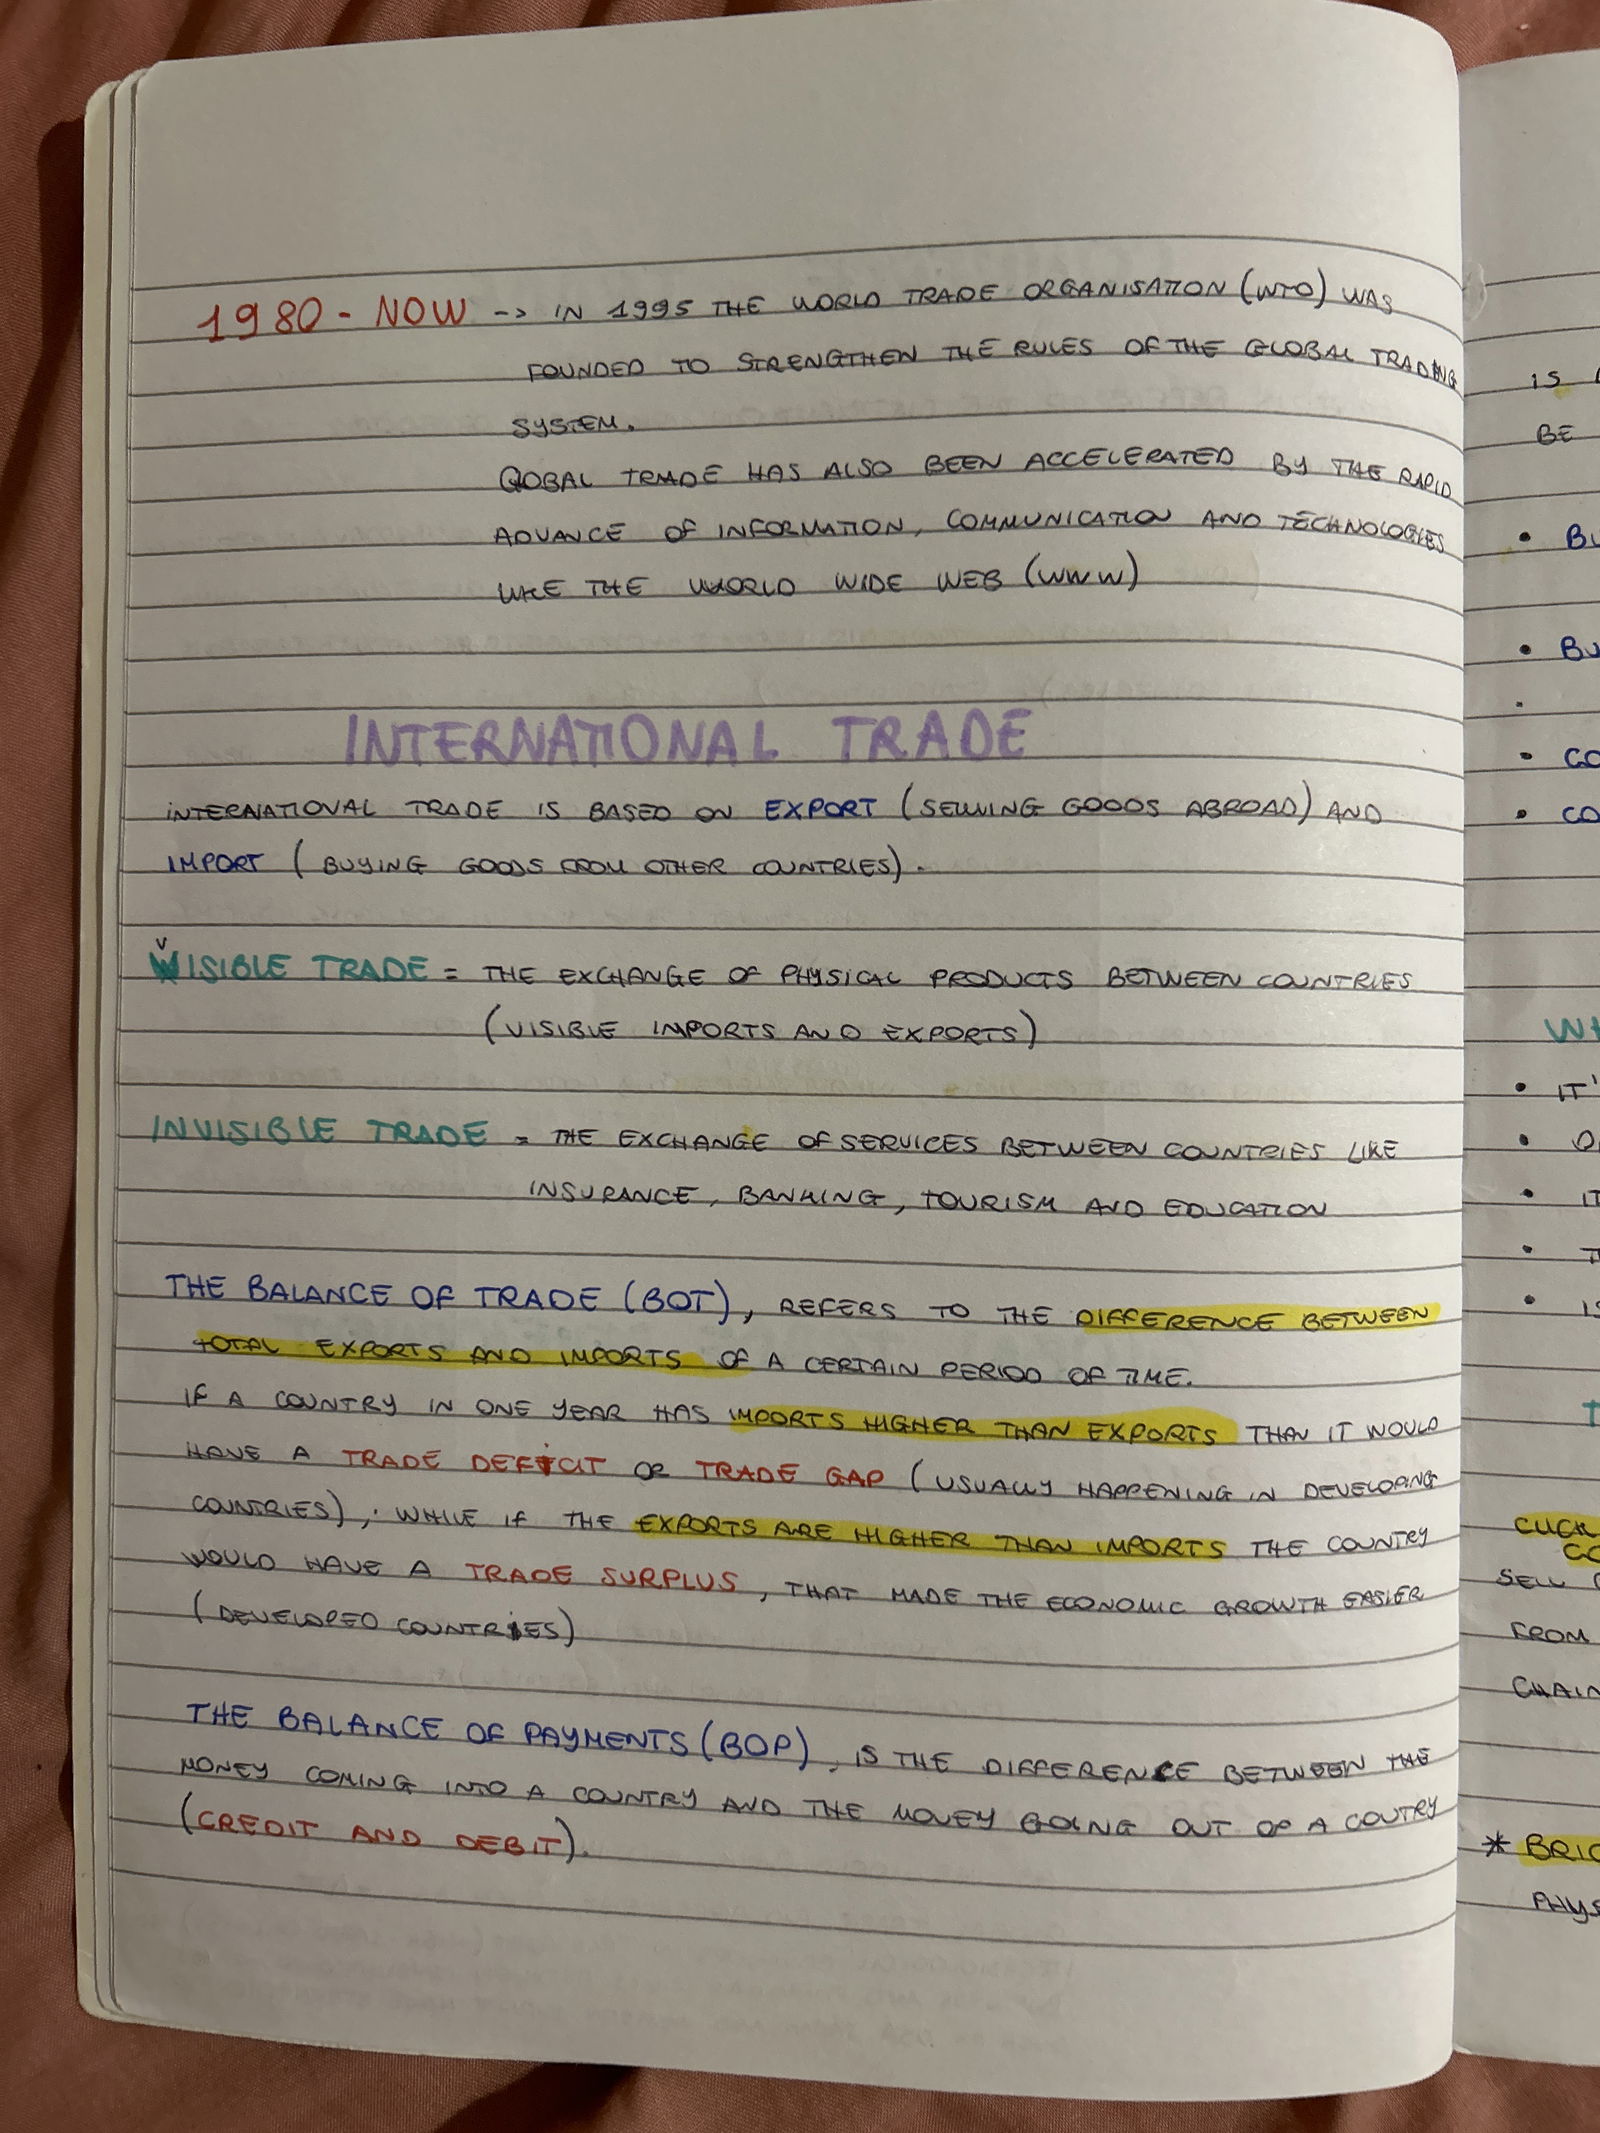 1980 - NOW -> IN 1995 THE WORLD TRADE ORGANISATION (WTO) WAS
FOUNDED TO STRENGTHEN THE RULES OF THE GLOBAL TRADING
SYSTEM.
GLOBAL TRADE HAS ALSO BEEN ACCELERATED BY THE RAPID
ADVANCE OF INFORMATION, COMMUNICATION AND TECHNOLOGIES
LIKE THE WORLD WIDE WEB (WWW)
INTERNATIONAL TRADE
INTERNATIONAL TRADE IS BASED ON EXPORT (SELLING GOODS ABROAD) AND
IMPORT (BUYING GOODS FROM OTHER COUNTRIES).
VISIBLE TRADE = THE EXCHANGE OF PHYSICAL PRODUCTS BETWEEN COUNTRIES
(VISIBLE IMPORTS AND EXPORTS)
INVISIBLE TRADE = THE EXCHANGE OF SERVICES BETWEEN COUNTRIES LIKE
INSURANCE, BANKING, TOURISM AND EDUCATION
THE BALANCE OF TRADE (BOT), REFERS TO THE DIFFERENCE BETWEEN
TOTAL EXPORTS AND IMPORTS OF A CERTAIN PERIOD OF TIME.
IF A COUNTRY IN ONE YEAR HAS IMPORTS HIGHER THAN EXPORTS THAN IT WOULD
HAVE A TRADE DEFICIT OR TRADE GAP (USUALLY HAPPENING IN DEVELOPING
COUNTRIES), WHILE IF THE EXPORTS ARE HIGHER THAN IMPORTS THE COUNTRY
WOULD HAVE A TRADE SURPLUS, THAT MADE THE ECONOMIC GROWTH EASIER
(DEVELOPED COUNTRIES)
THE BALANCE OF PAYMENTS (BOP), IS THE DIFFERENCE BETWEEN THE
MONEY COMING INTO A COUNTRY AND THE MONEY GOING OUT OF A COUTRY
(CREDIT AND DEBIT).
IS
BE
IT'
IT
IS
SELL
FROM
CHAIN